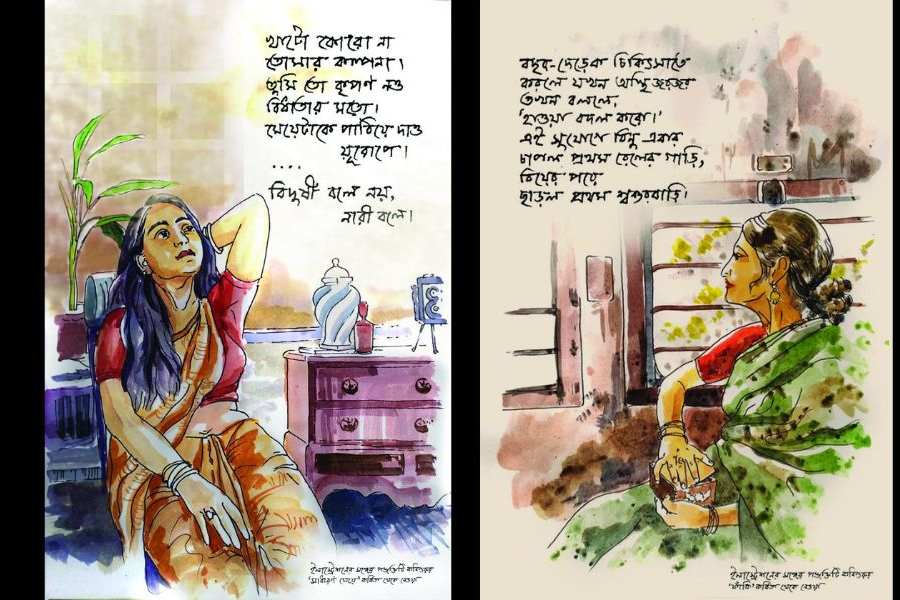 খাটো কোরো না
তোমার কল্পনা।
তুমি তো কৃপণ নও
বিধাতার মতো।
মেয়েটাকে পাঠিয়ে দাও
য়ুরোপে।
....
বিদুষী বলে নয়,
নারী বলে।
ইলাস্ট্রেশনের সঙ্গের পঙক্তিটি কবিগুরুর
'সাধারণ মেয়ে' কবিতা থেকে নেওয়া
বছর-দেড়েক চিকিৎসাতে
করলে যখন অস্থি জরজর
তখন বললে,
'হাওয়া বদল করো।'
এই সুযোগে বিনু এবার
চাপল প্রথম রেলের গাড়ি,
বিয়ের পরে
ছাড়ল প্রথম শ্বশুরবাড়ি।
ইলাস্ট্রেশনের সঙ্গের পঙক্তিটি কবিগুরুর
'ফাঁকি' কবিতা থেকে নেওয়া